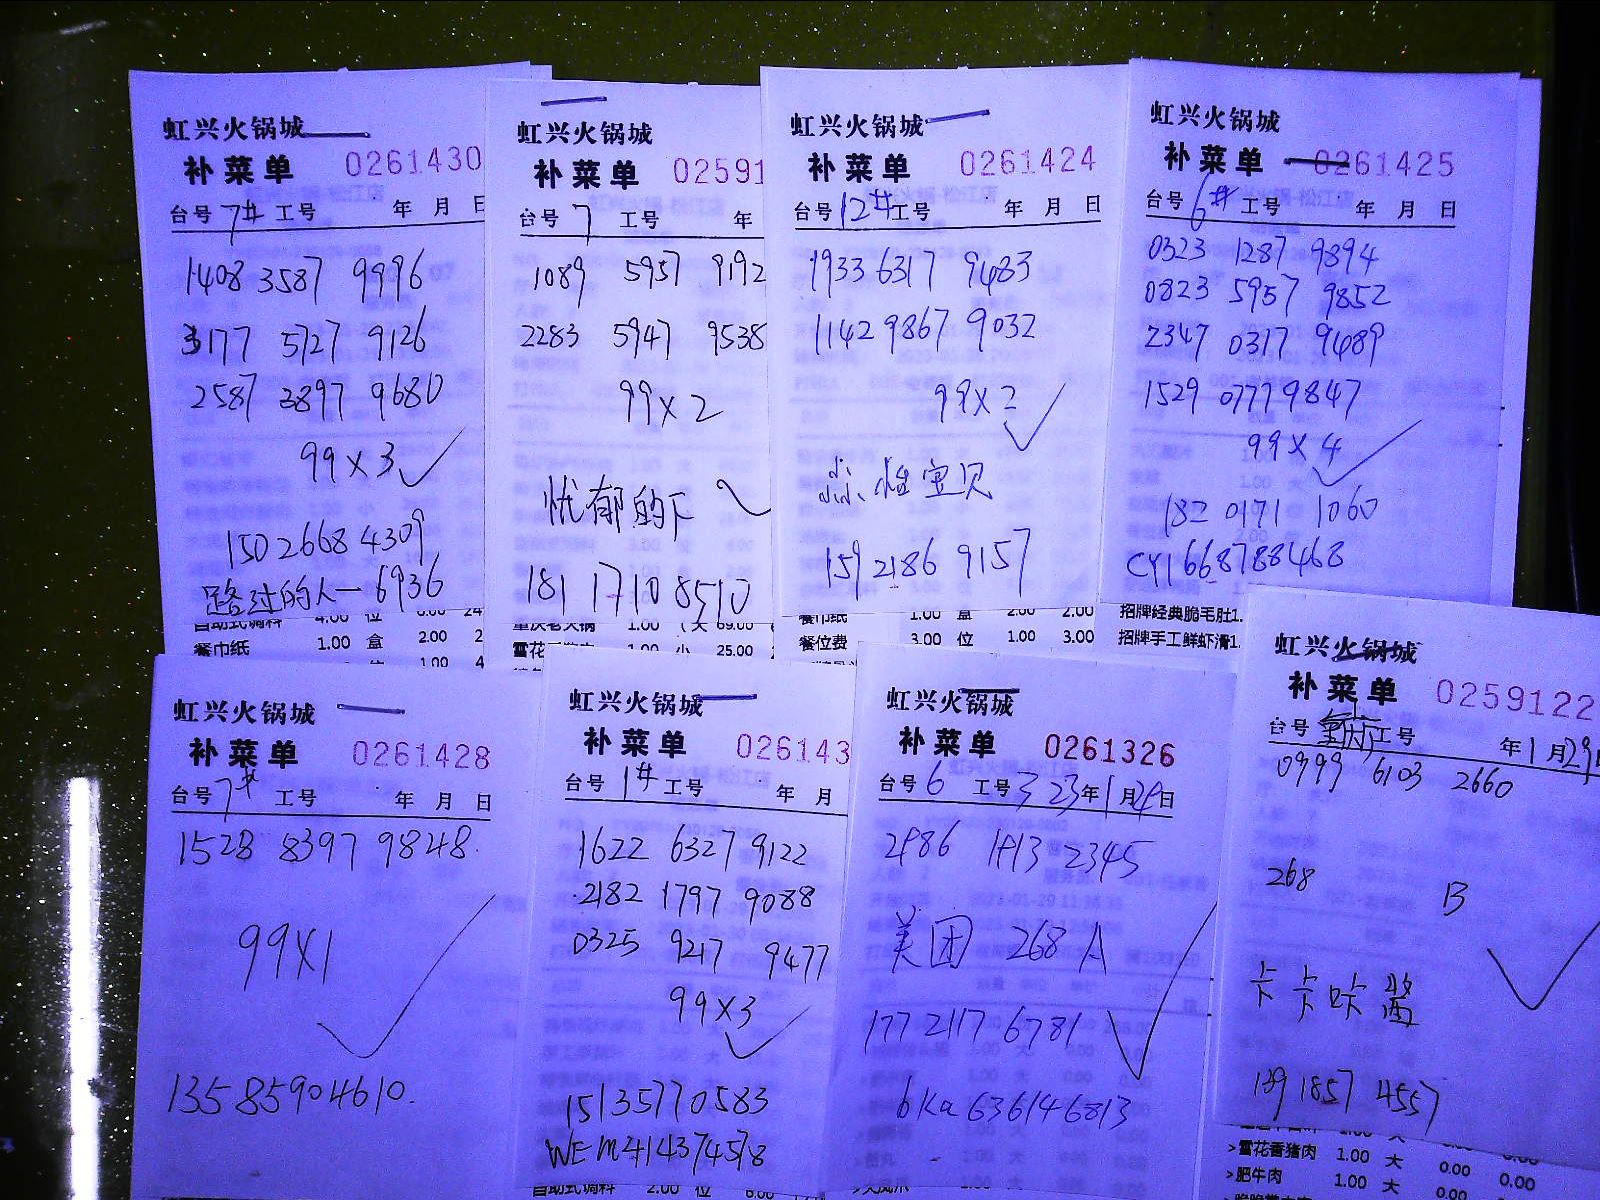 虹兴火锅城
补菜单 0261430
台号 7# 工号 年 月 日
1408 3587 9996
3177 5727 9126
2587 3897 9680
99×3
150 2668 4309
路过的人一6936
自助式调料 4.00 位
餐巾纸 1.00 盒 2.00
虹兴火锅城
补菜单 02591
台号 7 工号 年
1089 5957 9192
2283 5947 9538
99×2
忧郁的下
181 1710 8510
重庆老火锅 1.00 69.00
1.00 小 25.00
虹兴火锅城
补菜单 0261424
台号 12# 工号 年 月 日
1933 6317 9483
1142 9867 9032
99×2
宝贝
159 2186 9157
餐巾纸 1.00 盒 2.00 2.00
餐位费 3.00 位 1.00 3.00
虹兴火锅城
补菜单 0261425
台号 6# 工号 年 月 日
0323 1287 9894
0823 5957 9852
2347 0317 9489
1529 0777 9847
99×4
182 0171 1060
CY1668788468
招牌经典脆毛肚1.
招牌手工鲜虾滑1.
虹兴火锅城
补菜单 0261428
台号 7# 工号 年 月 日
1528 8397 9848
99×1
13585904610
虹兴火锅城
补菜单 026143
台号 1# 工号 年 月
1622 6327 9122
2182 1797 9088
0325 9217 9477
99×3
15135770583
WEM414374578
自助式调料 2.00 位 6.00
虹兴火锅城
补菜单 0261326
台号 6 工号 3 23年1月29日
2486 1413 2345
美团 268 A
177 2117 6781
bka636146813
虹兴火锅城
补菜单 0259122
台号 工号 年1月29
0999 6103 2660
268 B
卡卡咔酱
139 1857 4557
>雪花香猪肉 1.00 大 0.00 0.00
>肥牛肉 1.00 大 0.00 0.00